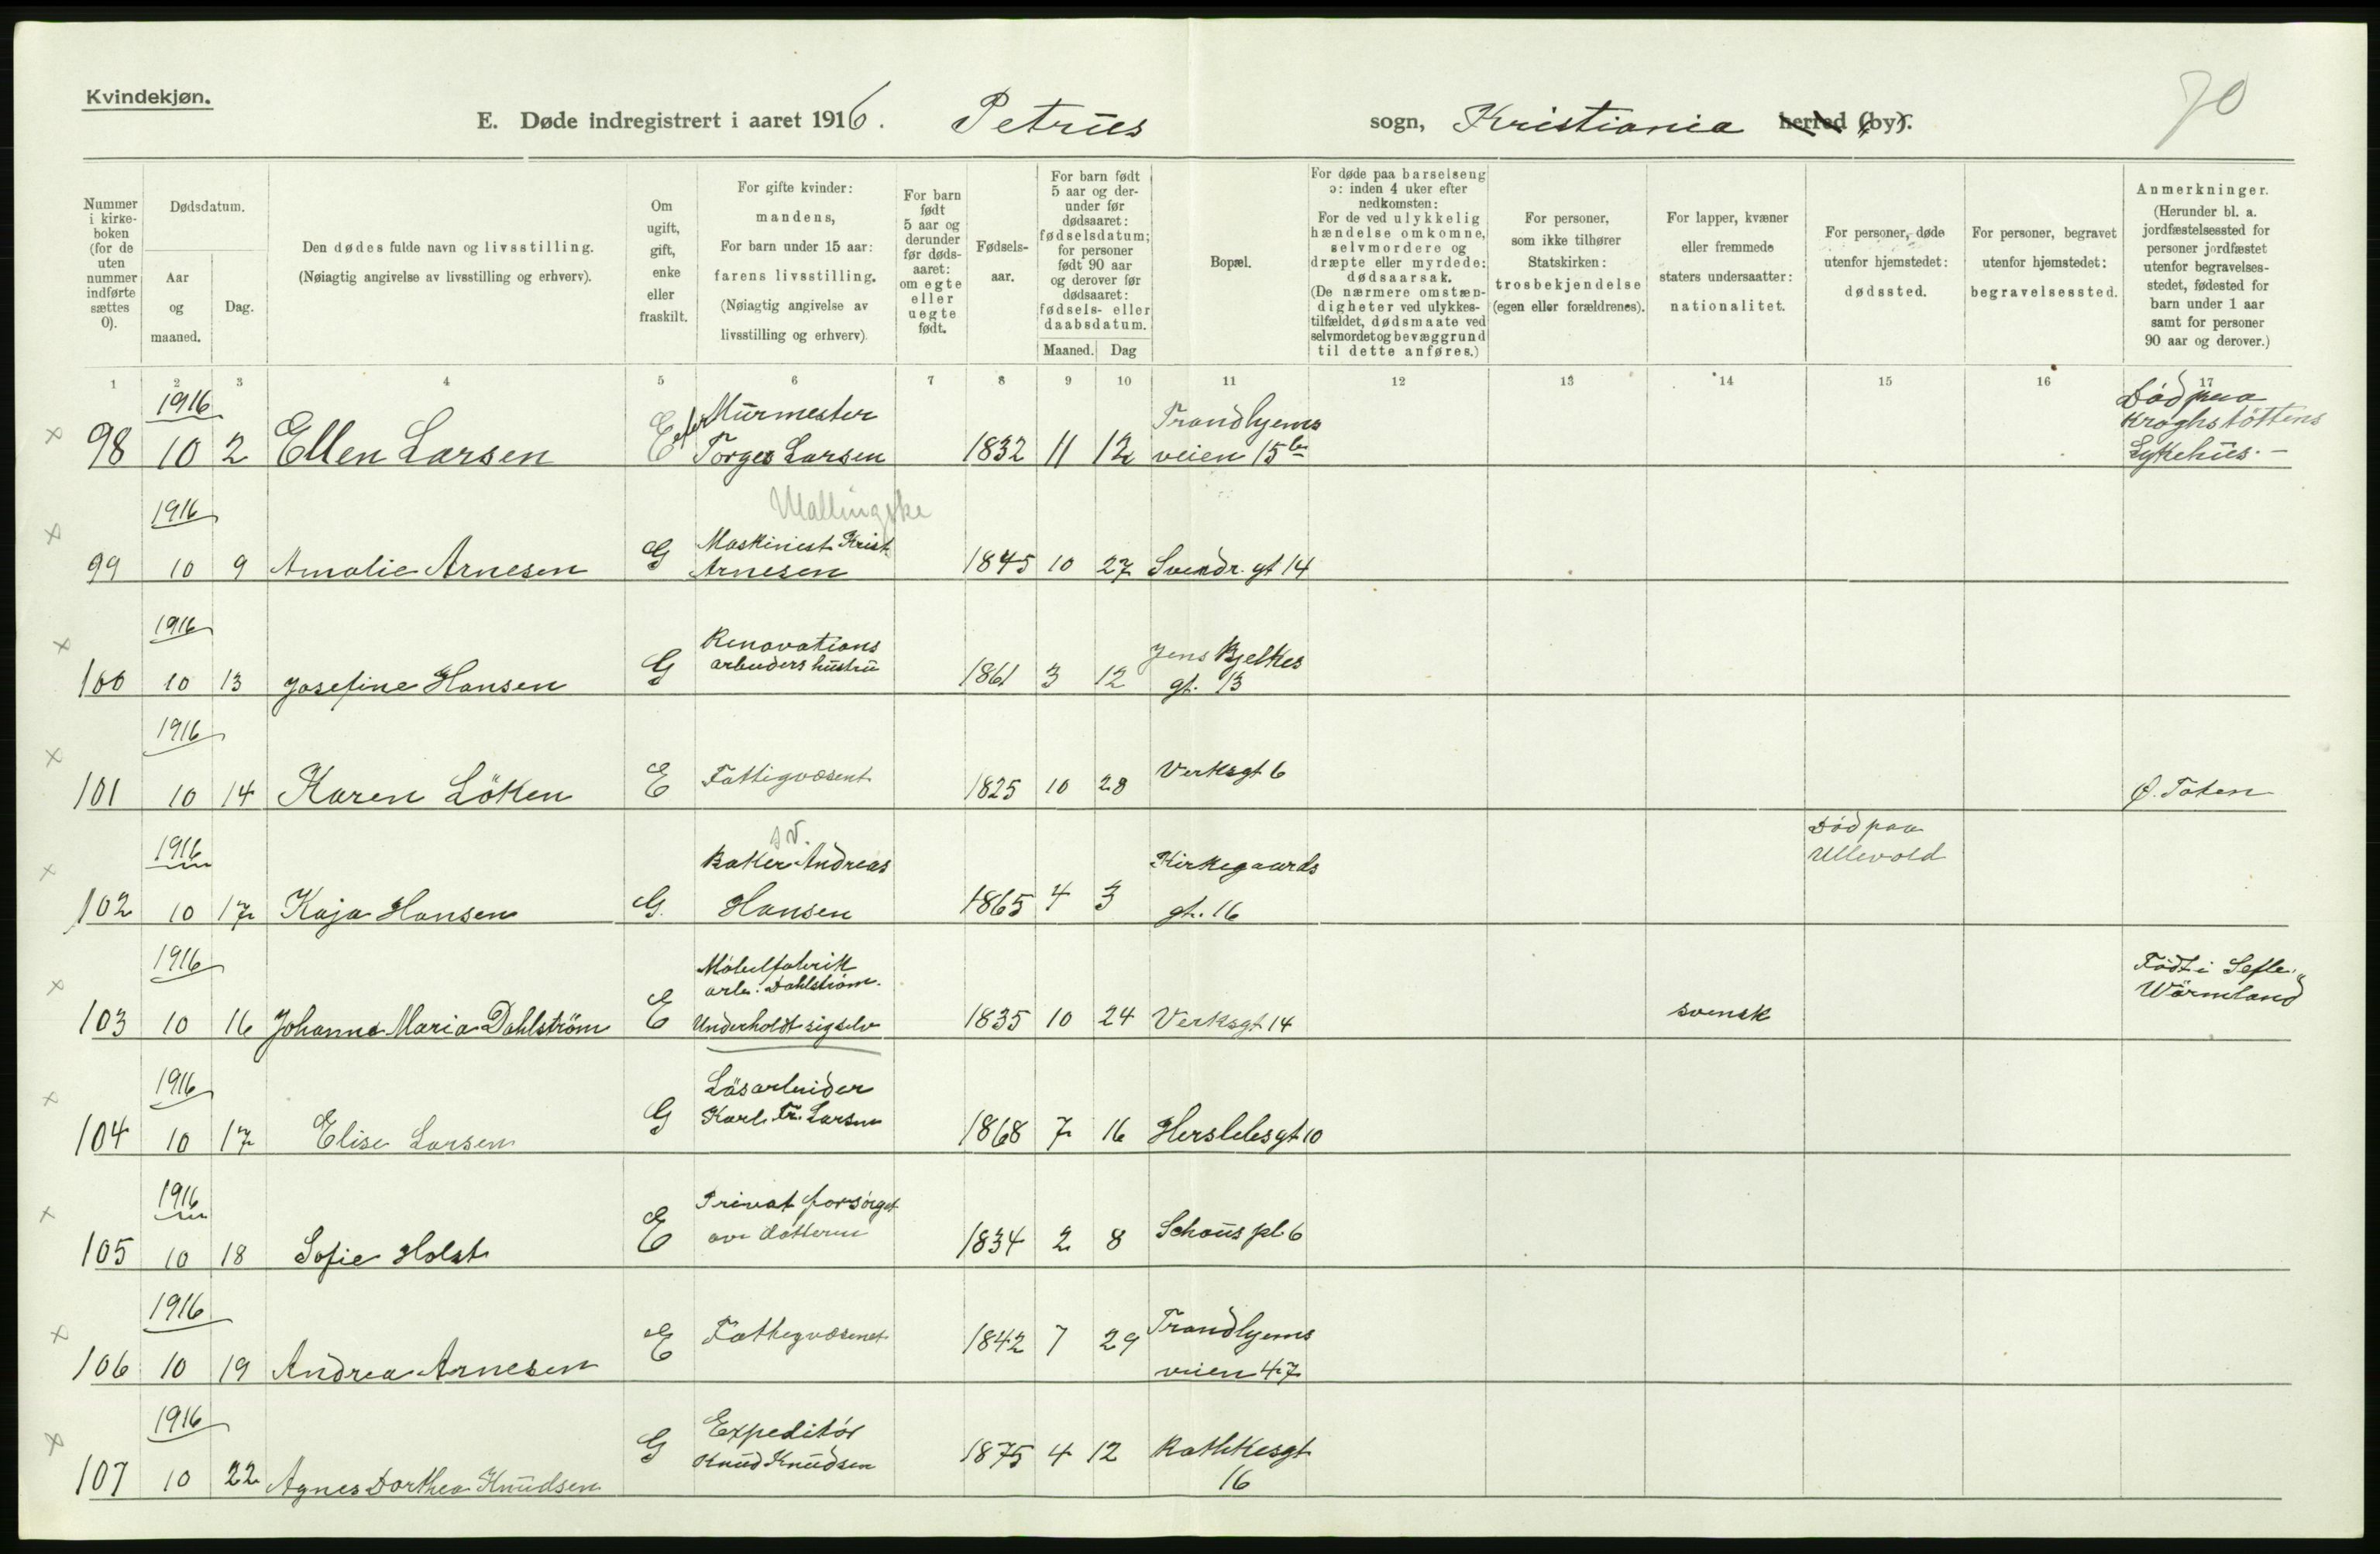 Kvindekjøn.
70
E. Døde indregistrert i aaret 1916. Petrus sogn, Kristiania herred (by).
Nummer i kirke-boken (for de uten nummer indførte sættes 0).
Dødsdatum.
Aar og maaned.
Dag.
Den dødes fulde navn og livsstilling.
(Nøiagtig angivelse av livsstilling og erhverv).
Om ugift, gift, enke eller fraskilt.
For gifte kvinder: mandens, For barn under 15 aar: farens livsstilling. (Nøiagtig angivelse av livsstilling og erhverv)
For barn født 5 aar og derunder før døds-aaret: om egte eller uegte født.
Fødsels-aar.
For barn født 5 aar og der-under før dødsaaret: fødselsdatum; for personer født 90 aar og derover før dødsaaret: fødsels- eller daabsdatum.
Maaned. Dag
Bopæl.
For døde paa barselseng ɔ: inden 4 uker efter nedkomsten: For de ved ulykkelig hændelse omkomne, selvmordere og dræpte eller myrdede: dødsaarsak. (De nærmere omstæn-digheter ved ulykkes-tilfældet, dødsmaate ved selvmordet og bevæggrund til dette anføres.)
For personer, som ikke tilhører Statskirken: trosbekjendelse (egen eller forældrenes).
For lapper, kvæner eller fremmede staters undersaatter: nationalitet.
For personer, døde utenfor hjemstedet: dødssted.
For personer, begravet utenfor hjemstedet: begravelsessted.
Anmerkninger. (Herunder bl. a. jordfæstelsessted for personer jordfæstet utenfor begravelses-stedet, fødested for barn under 1 aar samt for personer 90 aar og derover.)
1 2 3 4 5 6 7 8 9 10 11 12 13 14 15 16 17
1916
x 98 10 2 Ellen Larsen E efter Murmester Torger Larsen 1832 11 12 Trondhjems veien 15 b Död paa Kroghstöttens Sykehus.-
1916
x 99 10 9 Amalie Arnesen G Maskinist Krist. Arnesen 1845 10 27 Svendr. gt 14
1916
x 100 10 13 Josefine Hansen G Renovations arbeiders hustru 1861 3 12 Jens Bjelkes gt. 13
1916
x 101 10 14 Karen Löken E Fattigvæsent 1825 10 28 Verksgt 6 Ø. Toten
1916
x 102 10 17 Kaja Hansen G. Baker Andreas Hansen 1865 4 3 Kirkegaards gt. 16 Död paa Ullevold
1916
x 103 10 16 Johanna Maria Dahlström E Möbelfabrik arb. Dahlström. Underholdt sig selv 1835 10 24 Verksgt 14 svensk Född i Sefle Wärmland
1916
x 104 10 17 Elise Larsen G Lösarbeider Karl Fr. Larsen 1868 7 16 Herslebsgt 10
1916
x 105 10 18 Sofie Holst E Privat forsörget av datteren 1834 2 8 Schous pl. 6
1916
x 106 10 19 Andrea Arnesen E Fattigvæsenet 1842 7 29 Trondhjems veien 47
1916
x 107 10 22 Agnes Dorthea Knudsen G Expeditör Knud Knudsen 1875 4 12 Rathkesgt 16